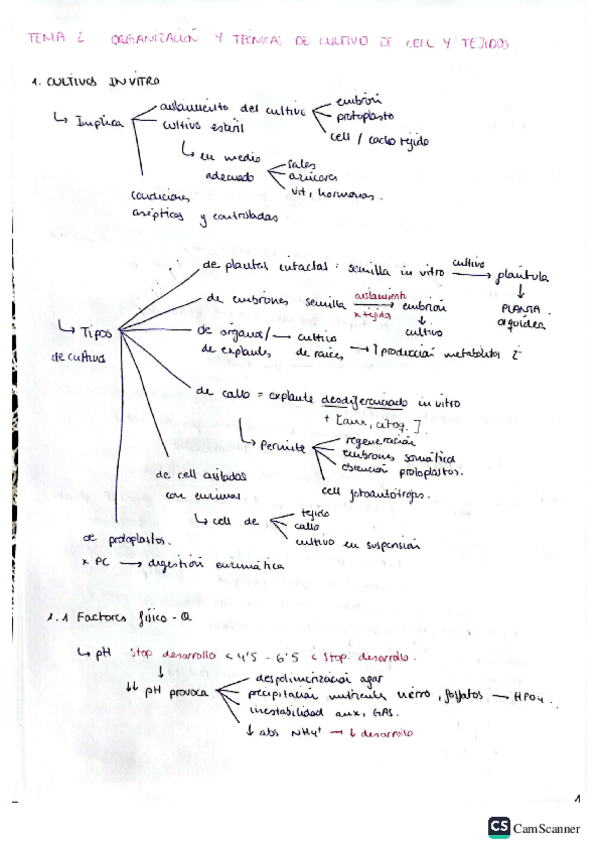 TEMA 2 ORGANIZACIÓN Y TÉCNICAS DE CULTIVO DE CELL Y TEJIDOS
1. CULTIVOS IN VITRO
↳ Implica
aislamiento del cultivo
embrión
protoplasto
cell / cacho tejido
cultivo estéril
↳ en medio adecuado
sales
azúcares
vit, hormonas.
condiciones
asépticas y controladas
↳ Tipos
de cultivos
de plantas intactas: semilla in vitro cultivo → plántula
↓
PLANTA
orquídea
de embriones semilla aislamiento → embrión
x tejido
↓
cultivo
de órganos/ → cultivo
de explants de raíces → ↑ producción metabolitos 2
de callo = explante desdiferenciado in vitro
+ [aux, citoq.]
↳ Permite
regeneración
embriones somática
obtención protoplastos.
cell fotoautótrofas.
de cell aisladas
con enzimas
↳ cell de
tejido
callo
cultivo en suspensión
de protoplastos.
x PC → digestión enzimática
1.1 Factores físico-Q
↳ pH Stop desarrollo < 4'5 - 6'5 < Stop. desarrollo.
↓
↓↓ pH provoca
despolimerización agar
precipitación nutrientes hierro, fosfatos → HPO4.
inestabilidad aux, GAS.
↓ abs NH4+ → ↓ desarrollo
1
CS CamScanner